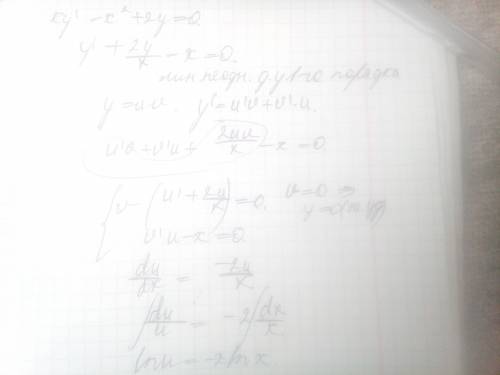 xy' - x² + 2y = 0.
y' + 2y/x - x = 0.
лин. неодн. д.у. 1-го порядка
y = uv. y' = u'v + v'u.
u'v + v'u + 2uv/x - x = 0.
{ v (u' + 2u/x) = 0. v = 0 ⇒
y = 0
v'u - x = 0.
du/dx = -2u/x
∫ du/u = -2 ∫ dx/x
ln u = -2 ln x